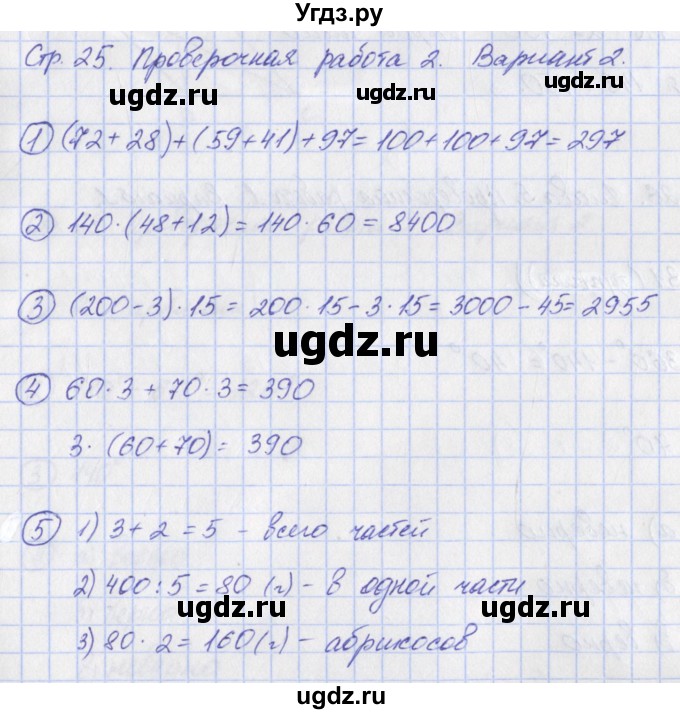 Угдз.ру
Стр. 25. Проверочная работа 2. Вариант 2.
ugdz.ru ugdz.ru ugdz.ru
1 (72 + 28) + (59 + 41) + 97 = 100 + 100 + 97 = 297
2 140 · (48 + 12) = 140 · 60 = 8400
ugdz.ru ugdz.ru
3 (200 - 3) · 15 = 200 · 15 - 3 · 15 = 3000 - 45 = 2955
ugdz.ru
4 60 · 3 + 70 · 3 = 390
3 · (60 + 70) = 390
ugdz.ru ugdz.ru
5 1) 3 + 2 = 5 - всего частей
2) 400 : 5 = 80 (г) - в одной части
ugdz.ru ugdz.ru
3) 80 · 2 = 160 (г) - абрикосов
ugdz.ru